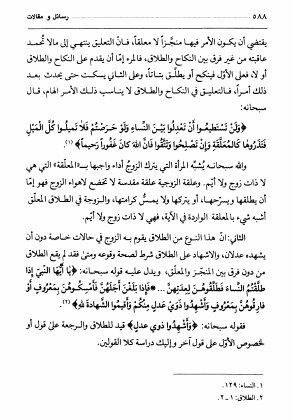 ٥٨٨ رسائل و مقالات
يقتضي أن يكون الأمر فيها منجّزاً لا معلقاً، فانّ التعليق ينتهي إلى مالا تُحمد
عاقبته من غير فرق بين النكاح والطلاق، فالمرء إمّا أن يقدم على النكاح والطلاق
أو لا، فعلى الأوّل فينكح أو يطلّق بتاتاً، وعلى الثاني يسكت حتى يحدث بعد
ذلك أمراً، فالتعليق في النكاح والطلاق لا يناسب ذلك الأمر الهام، قال
سبحانه:
﴿وَلَنْ تَسْتَطيعُوا أَنْ تَعْدِلُوا بَيْنَ النِّساءِ وَلَوْ حَرَصْتُمْ فَلا تَميلُوا كُلَّ المَيْلِ
فَتَذَرُوها كَالمُعَلَّقَةِ وَإِنْ تُصْلِحُوا وَتَتَّقُوا فَإِنَّ اللهَ كانَ غَفُوراً رَحيماً﴾ (١)
والله سبحانه يُشبِّه المرأة التي يترك الزوجُ أداءَ واجبها بـ«المعلّقة» التي هي
لا ذات زوج ولا أيّم. وعلقة الزوجية علقة مقدسة لا تخضع لاهواء الزوج فهو إمّا
أن يطلقها ويسرّحها، أو يتركها ولا يمسّ كرامتها، والزوجة في الطلاق المعلّق
أشبه شيء بالمعلقة الواردة في الآية، فهي لا ذات زوج ولا أيّم.
الثاني: انّ هذا النوع من الطلاق يقوم به الزوج في حالات خاصة دون أن
يشهده عدلان، والاشهاد على الطلاق شرط لصحة وقوعه ومتى فقد لم يقع الطلاق
من دون فرق بين المنجّز والمعلّق، ويدل عليه قوله سبحانه: ﴿يا أَيُّهَا النَّبِيُّ إِذا
طَلَّقْتُمُ النِّساءَ فَطَلِّقُوهُنَّ لِعِدَّتِهِنَّ ... * فَإِذا بَلَغْنَ أَجَلَهُنَّ فَأَمْسِكُوهُنَّ بِمَعْرُوفٍ أَوْ
فارِقُوهُنَّ بِمَعْرُوفٍ وَأَشْهِدُوا ذَوَيْ عَدْلٍ مِنْكُمْ وَأَقيمُوا الشَّهادةَ لله﴾ (٢).
فقوله سبحانه: ﴿وَأَشْهِدُوا ذوي عدلٍ﴾ قيد للطلاق والرجعة على قول أو
لخصوص الأوّل على قول آخر وإليك دراسة كلا القولين.
١. النساء: ١٢٩.
٢. الطلاق: ١ـ٢.